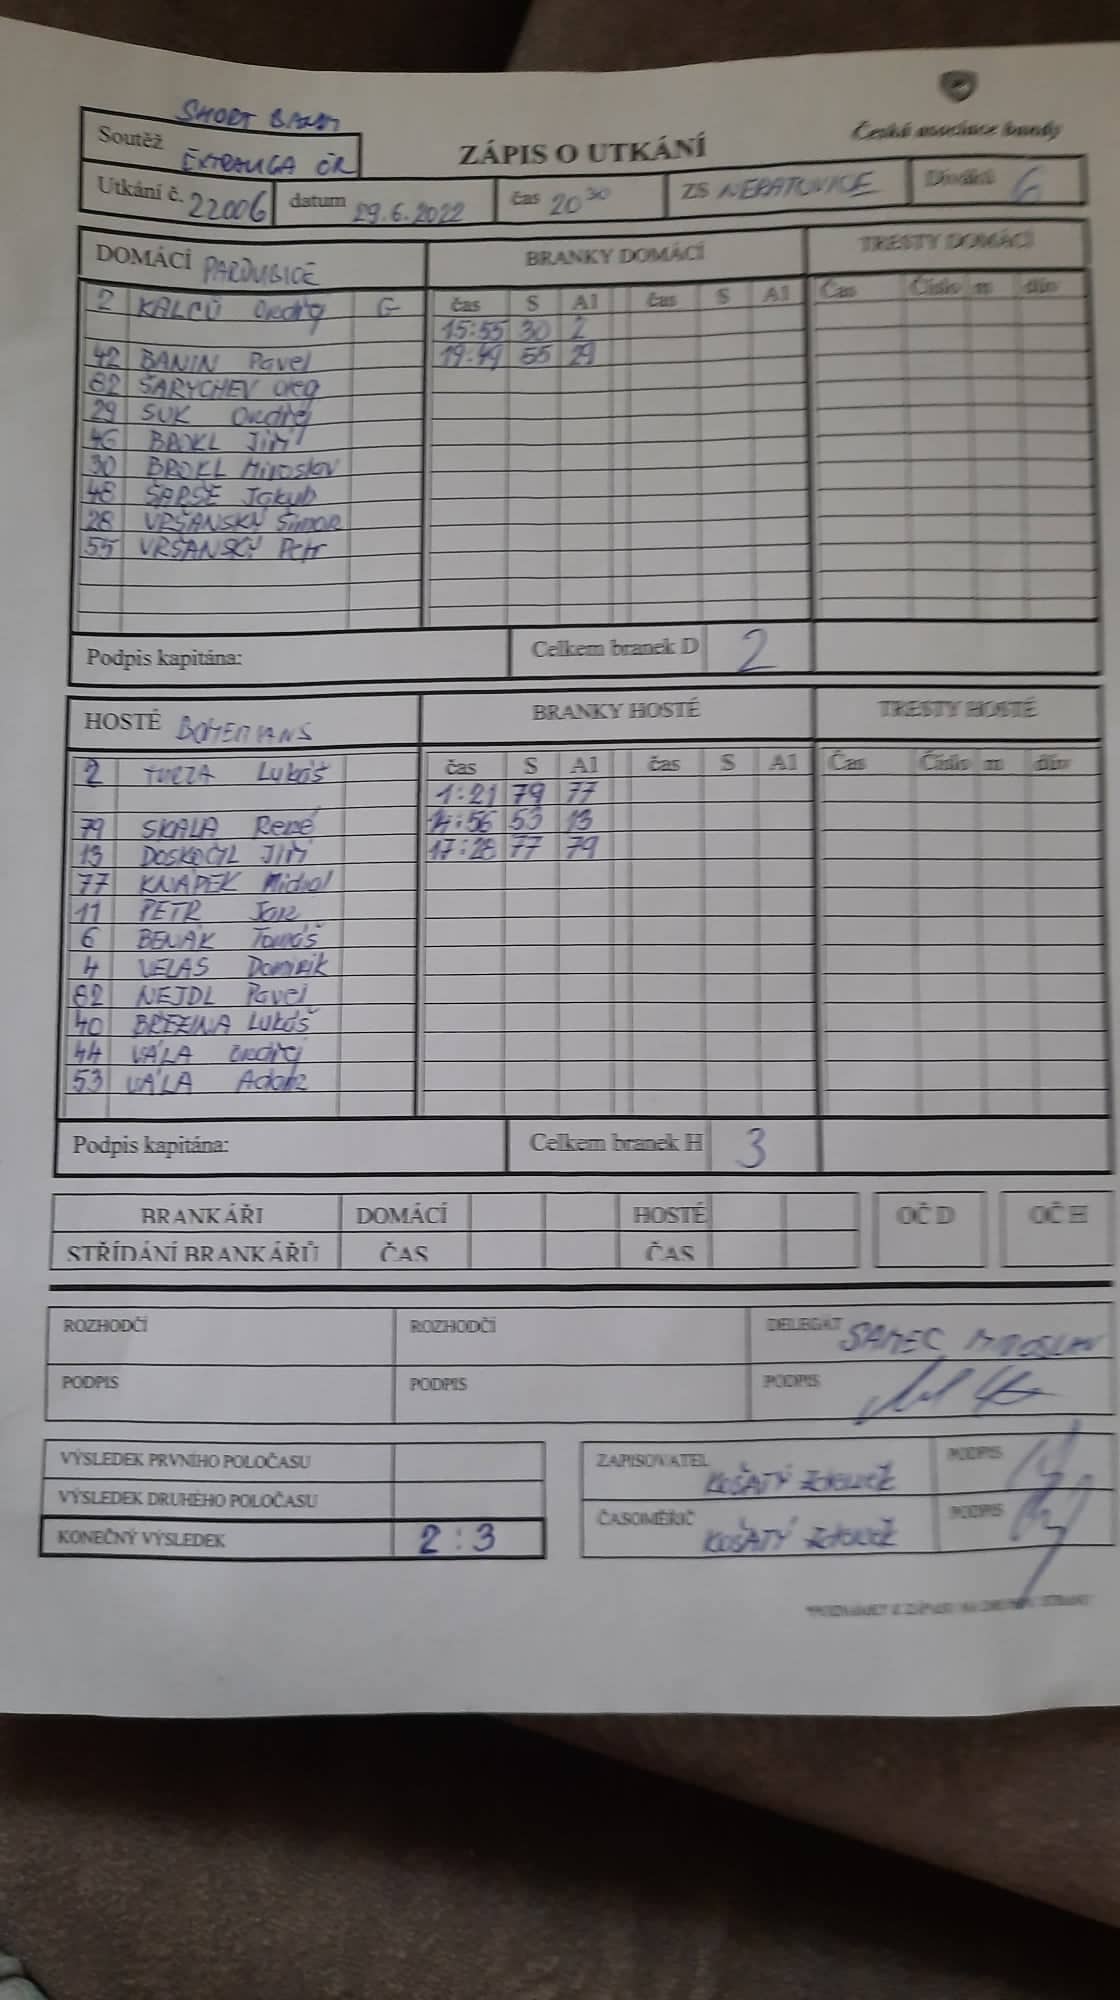 SHORT BANDY
Soutěž EXTRALIGA ČR
ZÁPIS O UTKÁNÍ
Česká asociace bandy
Utkání č. 22006 datum 29.6.2022 čas 20 30 ZS NERATOVICE Diváků 6
DOMÁCÍ PARDUBICE BRANKY DOMÁCÍ TRESTY DOMÁCÍ
2 KALCŮ Ondřej G čas S A1 čas S A1 Čas Číslo m dův
15:55 30 2
42 BANIN Pavel 19:49 55 29
82 ŠARYCHEV Oleg
29 SUK Ondřej
46 BROKL Jiří
30 BROKL Miroslav
48 ŠARŠE Jakub
28 VRŠANSKÝ Šimon
55 VRŠANSKÝ Petr
Podpis kapitána: Celkem branek D 2
HOSTÉ BOHEMIANS BRANKY HOSTÉ TRESTY HOSTÉ
2 Lukáš čas S A1 čas S A1 Čas Číslo m dův
1:21 79 77
79 SKALA René :56 53 13
13 DOSKOČIL Jiří 17:28 77 79
77 KNAPEK Michal
11 PETR Jan
6 BENÁK Tomáš
4 VELAS Dominik
82 NEJDL Pavel
40 BŘEZINA Lukáš
44 VÁLA Ondřej
53 VÁLA Adam
Podpis kapitána: Celkem branek H 3
BRANKÁŘI DOMÁCÍ HOSTÉ OČ D OČ H
STŘÍDÁNÍ BRANKÁŘŮ ČAS ČAS
ROZHODČÍ ROZHODČÍ DELEGÁT SAMEC MIROSLAV
PODPIS PODPIS PODPIS
VÝSLEDEK PRVNÍHO POLOČASU
VÝSLEDEK DRUHÉHO POLOČASU
KONEČNÝ VÝSLEDEK 2:3
ZAPISOVATEL KOŠATÝ PODPIS
ČASOMĚŘIČ KOŠATÝ PODPIS